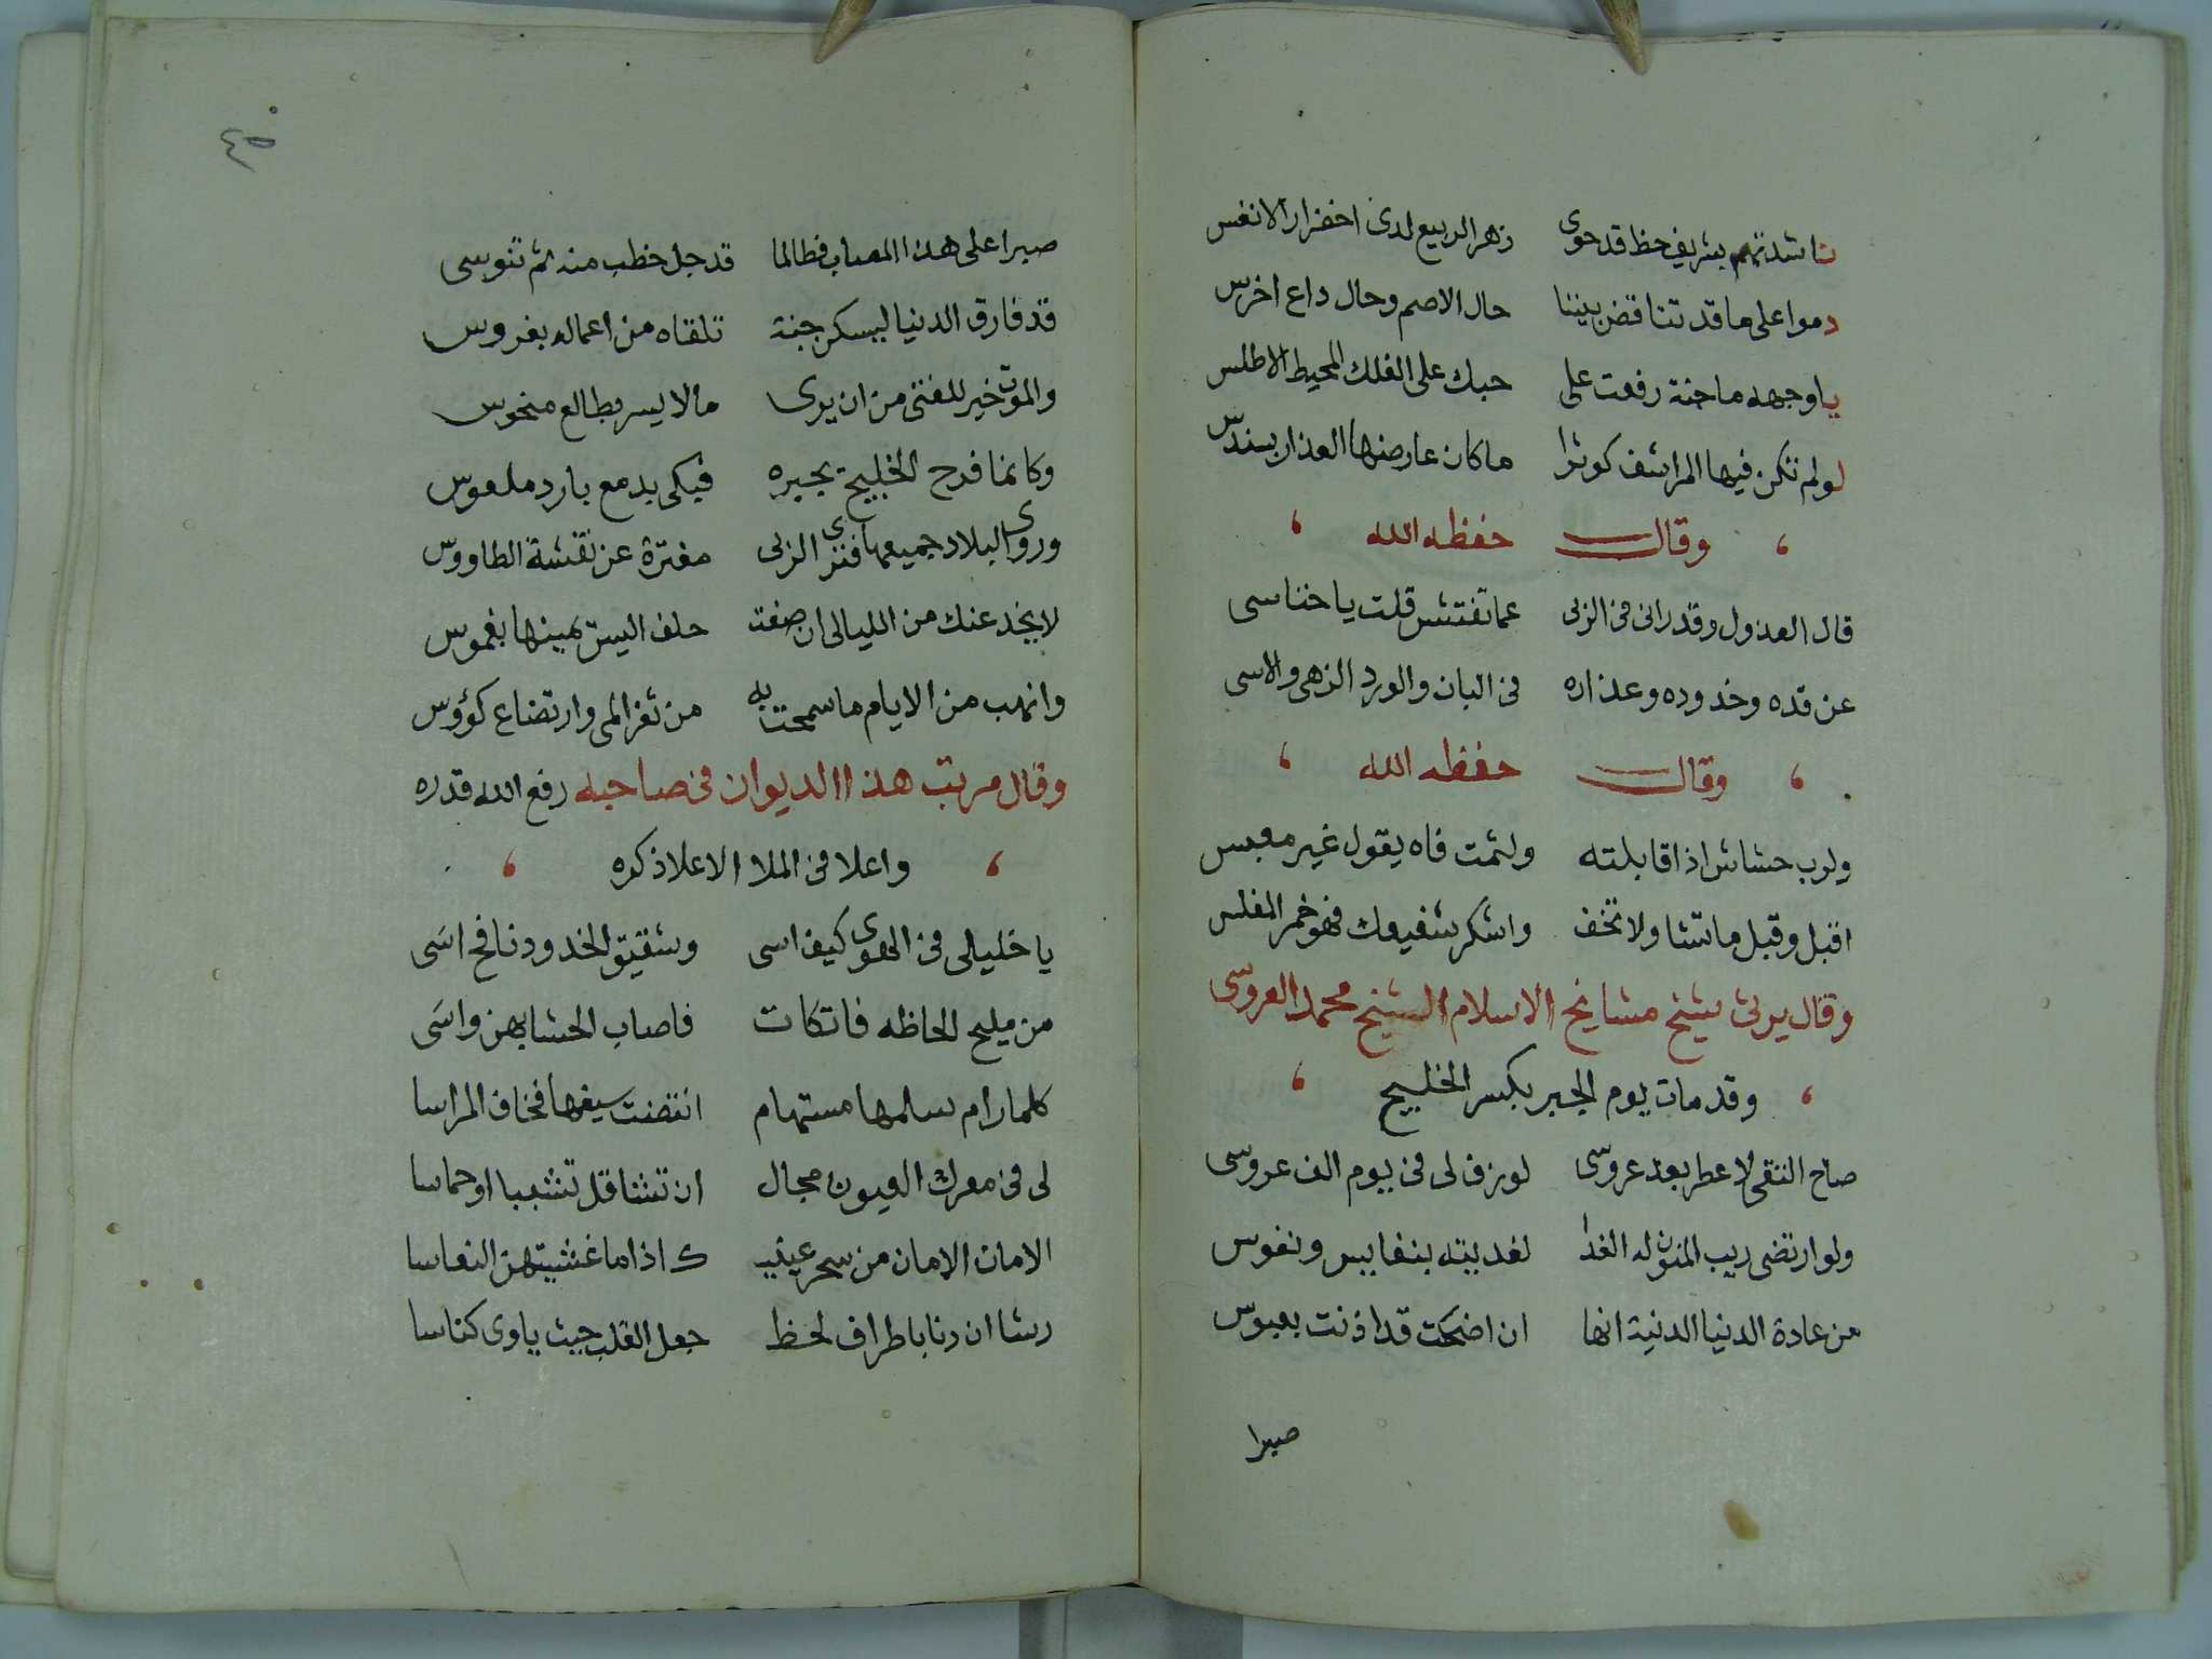 ناشدتهم بشريف حظ قد حوى زهر الربيع لدى اخضرار الانفس
دموا على ما قد تناقض بيننا حال الاصم وحال داع اخرس
ياوجهه ما جنة رفعت على حبك على الفلك المحيط الاطلس
لولم تكن فيها المراشف كوثرا ما كان عارضها العذار بسندس
وقال حفظه الله
قال العذول وقد رانى فى الربى عما تفتش قلت ياخناسى
عن قده وخدوده وعذاره فى البان والورد الزهى والاسى
وقال حفظه الله
ولرب حشاش اذا قابلته ولثمت فاه يقول غير معبس
اقبل وقبل ماتشا ولا تخف واشكر شفيعك فهو خمر المفلس
وقال يرثى شيخ مشايخ الاسلام الشيخ محمد العروسى
وقد مات يوم الجبر بكسر الخليج
صاح التقى لا عطر بعد عروسى لو زف لى فى يوم الف عروسى
ولو ارتضى ريب المنون له الفدا لفديته بنفايس ونفوس
من عادة الدنيا الدنية انها ان اضحكت قد اذنت بعبوس
صبرا
٤٥
صبرا على هذا المصاب فطالما قد جل خطب منه ثم تنوسى
قد فارق الدنيا ليسكن جنة تلقاه من اعماله بغروس
والموت خير للفتى من ان يرى مالا يسر بطالع منحوس
وكانما فرح الخليج بجبره فبكى بدمع بارد ملعوس
وروى البلاد جميعها فترى الربى مفترة عن نقشة الطاووس
لا يخدعنك من الليالى ان صفت حلف اليسر يمينها بغموس
وانهب من الايام ما سمحت به من ثغر المى وارتضاع كؤوس
وقال مرتب هذا الديوان فى صاحبه رفع الله قدره
واعلا فى الملا الاعلا ذكره
يا خليالى فى الهوى كيف اسى وشقيق الخدود نافح اسَى
من مليح الحاظه فاتكات فاصاب الحشا بهن واسَى
كلما رام سلمها مستهام انتضت سيفها فخاف المراسا
لى فى معرك العيون مجال ان تشا قل تشببا او حماسا
الامان الامان من سحر عينيـ ـك اذا ما غشيتهن النعاسا
رشا ان رنا باطراف لحظ جعل القلب حيث ياوى كناسا